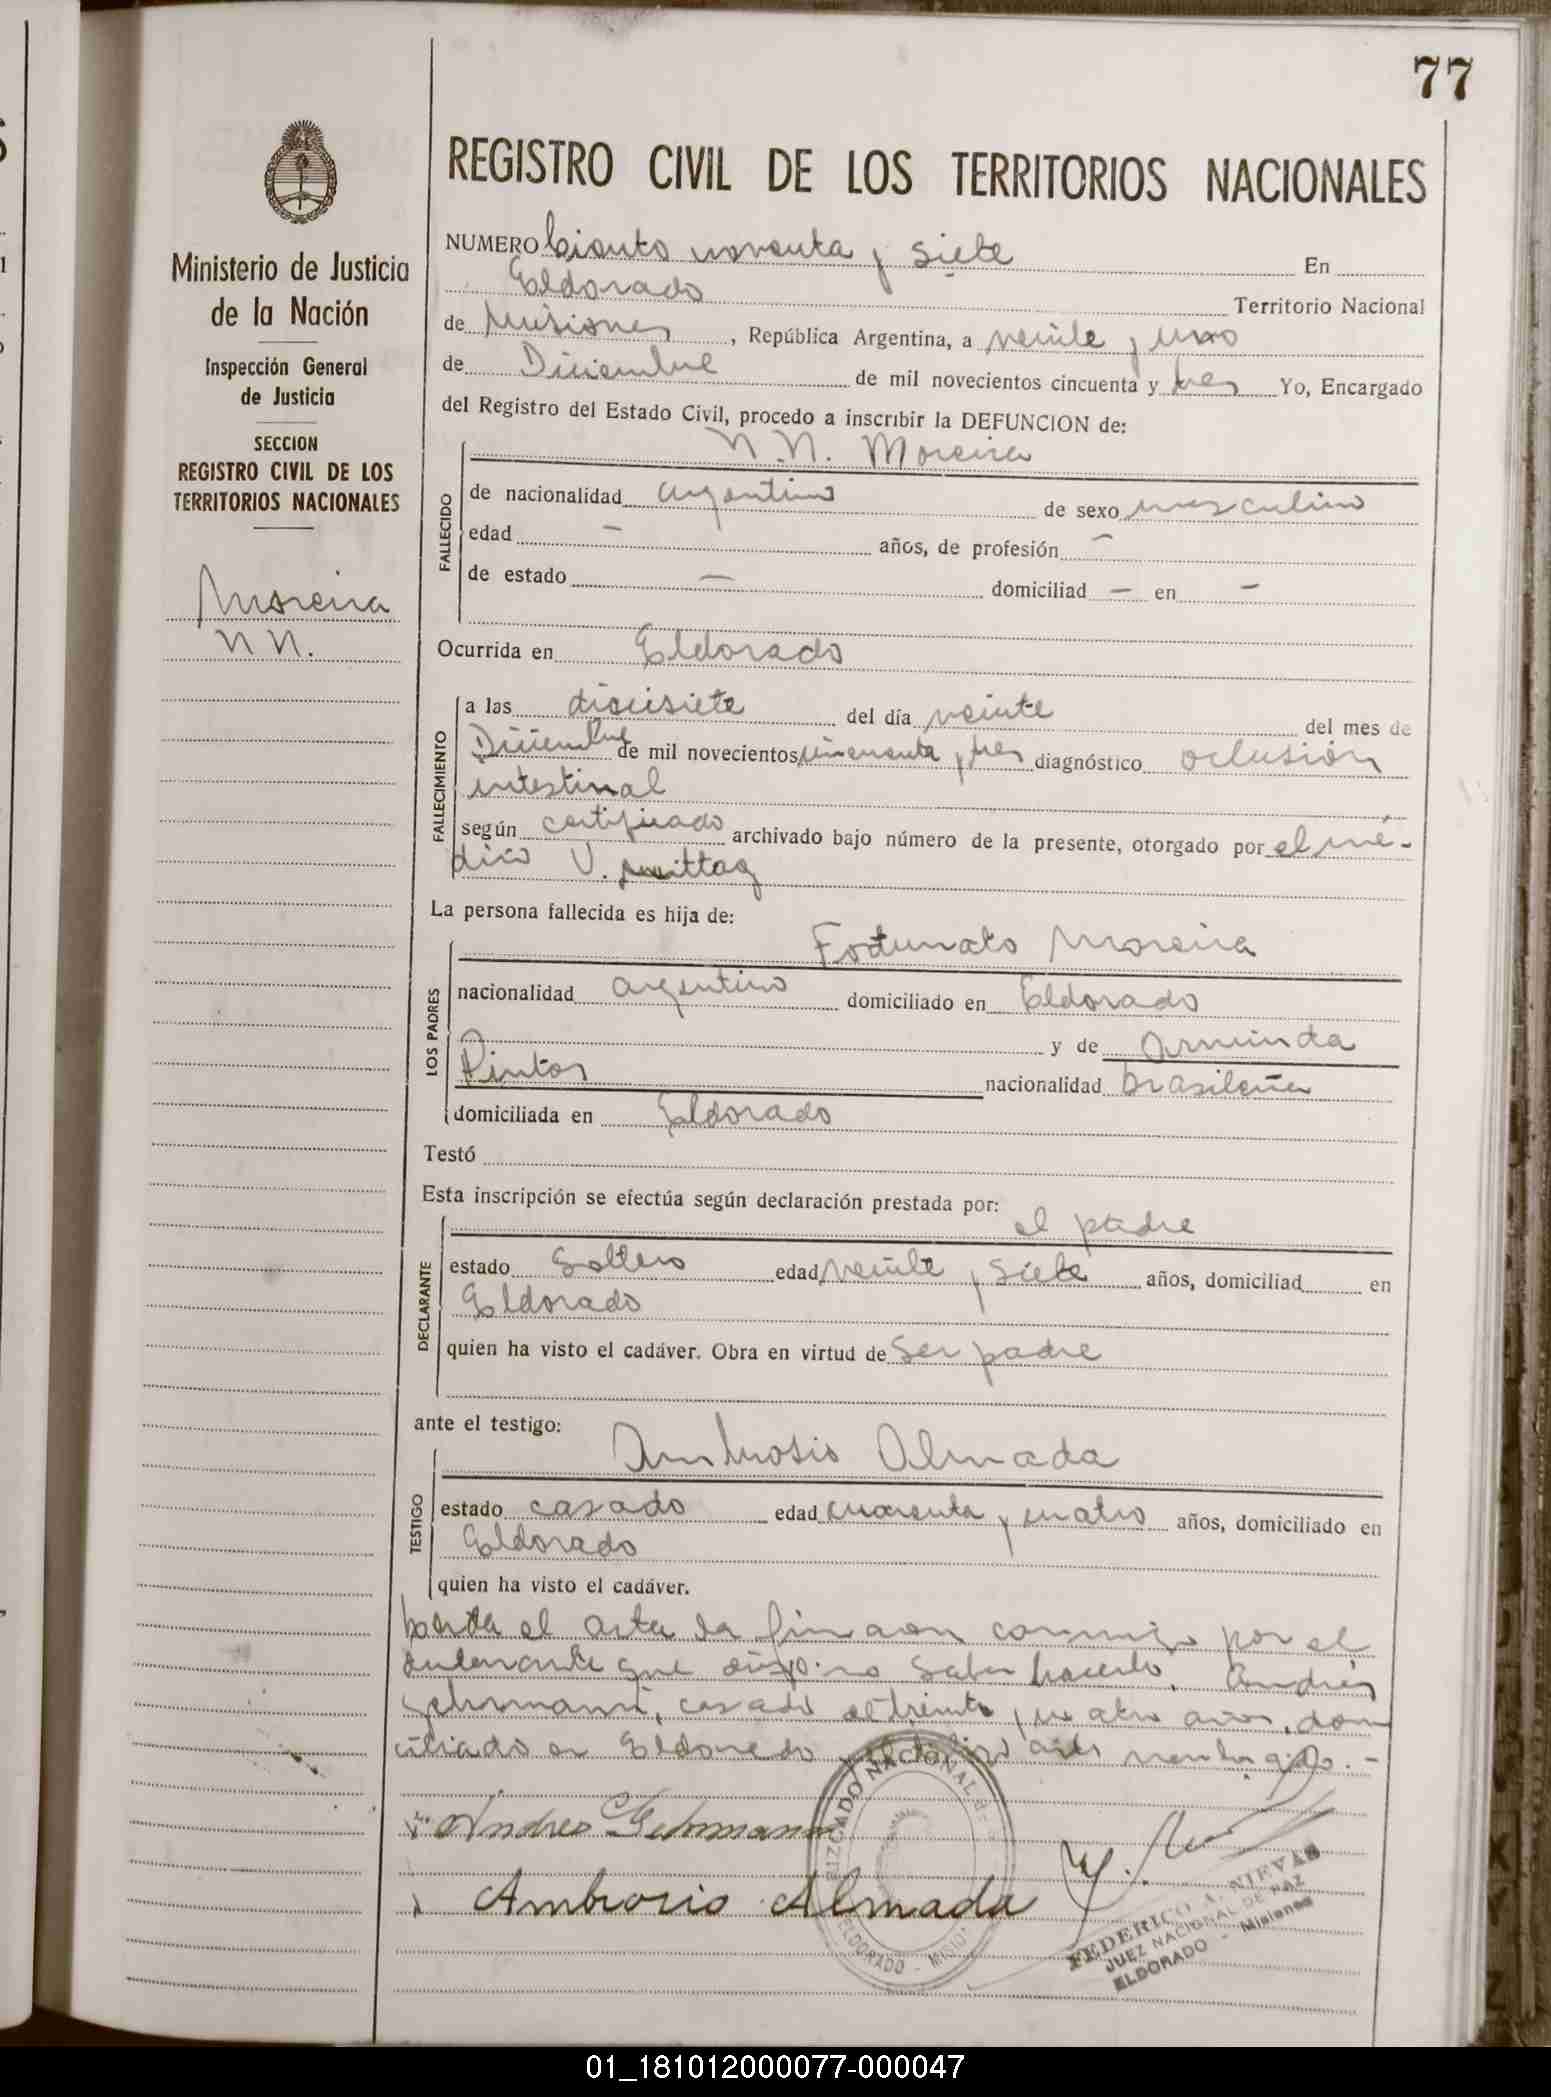 77
REGISTRO CIVIL DE LOS TERRITORIOS NACIONALES
Ministerio de Justicia
de la Nación
Inspección General
de Justicia
SECCION
REGISTRO CIVIL DE LOS
TERRITORIOS NACIONALES
Moreira
N N.
NUMERO Ciento noventa y siete En
Eldorado Territorio Nacional
de Misiones, República Argentina, a veinte y uno
de Diciembre de mil novecientos cincuenta y tres Yo, Encargado
del Registro del Estado Civil, procedo a inscribir la DEFUNCION de:
N.N. Moreira
FALLECIDO
de nacionalidad argentino de sexo masculino
edad — años, de profesión —
de estado — domiciliad — en —
Ocurrida en Eldorado
FALLECIMIENTO
a las diecisiete del día veinte del mes de
Diciembre de mil novecientos cincuenta y tres diagnóstico oclusión
intestinal
según certificado archivado bajo número de la presente, otorgado por el mé-
dico V. Mittag
La persona fallecida es hija de:
Fortunato Moreira
LOS PADRES
nacionalidad argentino domiciliado en Eldorado
y de Arminda
Pintos nacionalidad brasileña
domiciliada en Eldorado
Testó
Esta inscripción se efectúa según declaración prestada por:
el padre
DECLARANTE
estado Soltero edad veinte y siete años, domiciliad en
Eldorado
quien ha visto el cadáver. Obra en virtud de ser padre
ante el testigo:
Ambrosio Almada
TESTIGO
estado casado edad cuarenta y cuatro años, domiciliado en
Eldorado
quien ha visto el cadáver.
el acta la firmaron conmigo por el
declarante que dijo no saber hacerlo, Andrés
Gehrmann, casado de treinta y cuatro años, domi
ciliado en Eldorado y el testigo
Andres Gehrmann
Ambrosio Almada
JUZGADO NACIONAL de
ELDORADO - MISIO
FEDERICO A. NIEVAS
JUEZ NACIONAL DE PAZ
ELDORADO - Misiones
01_181012000077-000047